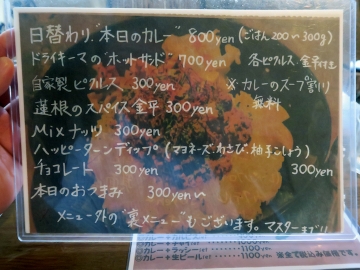 日替わり"本日のカレー" 800yen (ごはん200〜300g)
ドライキーマの"ホットサンド" 700yen 各ピクルス・金平付き
自家製ピクルス 300yen ※カレーのスープ割り
蓮根のスパイス金平 300yen 無料
Mixナッツ 300yen
ハッピーターンディップ (マヨネーズ、わさび、柚子こしょう)
チョコレート 300yen 300yen
本日のおつまみ 300yen〜
メニュー外の"裏メニュー"もございます。マスターまで!!
□カレー+ラッシー
□カレー+生ビール 1100